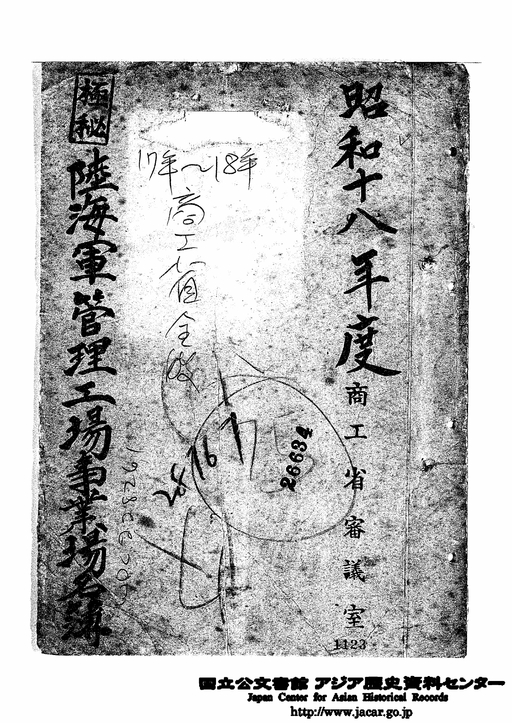 昭和十八年度
商工省審議室
17年〜18年
商工
極秘
陸海軍管理工場事業場名簿
26634
1123
国立公文書館 アジア歴史資料センター
Japan Center for Asian Historical Records
http://www.jacar.go.jp